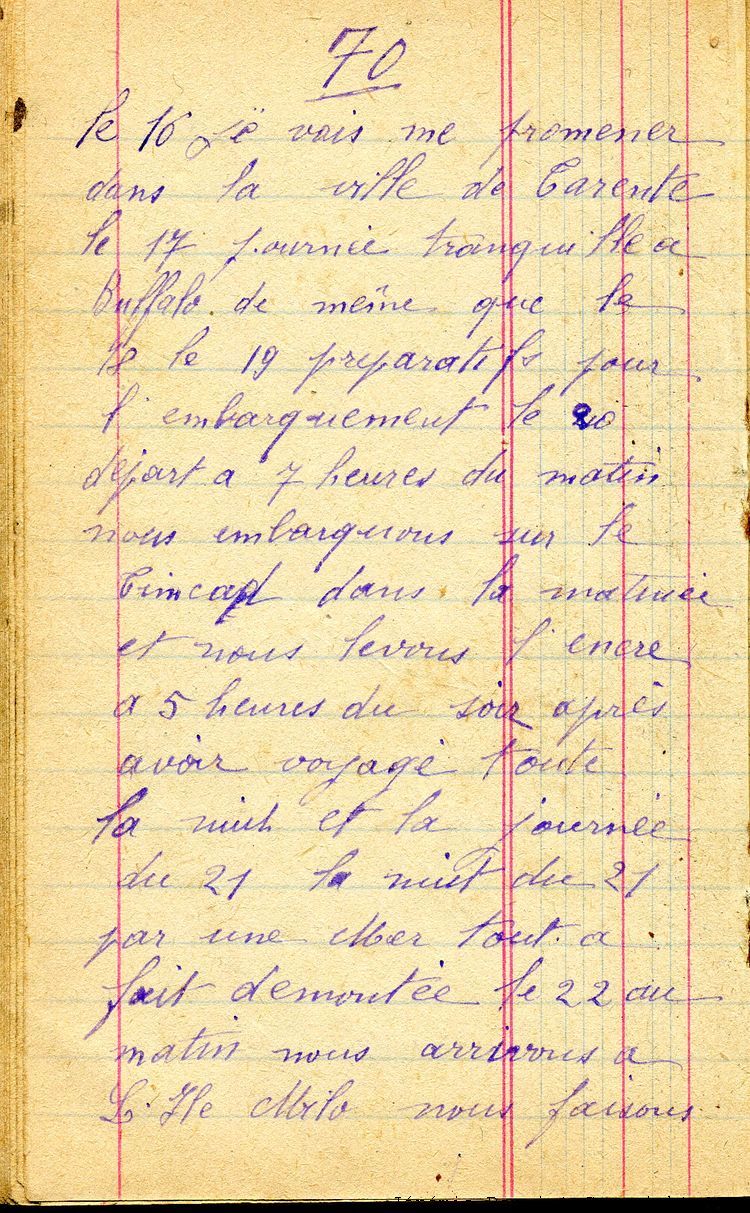 70
le 16 Je vais me promener
dans la ville de Tarente
le 17 journée tranquille a
Buffalo de même que le
18 le 19 preparatifs pour
l'embarquement le 20
départ a 7 heures du matin
nous embarquons sur le
Timcad dans la matinée
et nous levons l'encre
a 5 heures du soir après
avoir voyagé toute
la nuit et la journée
du 21 la nuit du 21
par une Mer tout a
fait demontée le 22 au
matin nous arrivons a
L'Ile Milo nous faisons